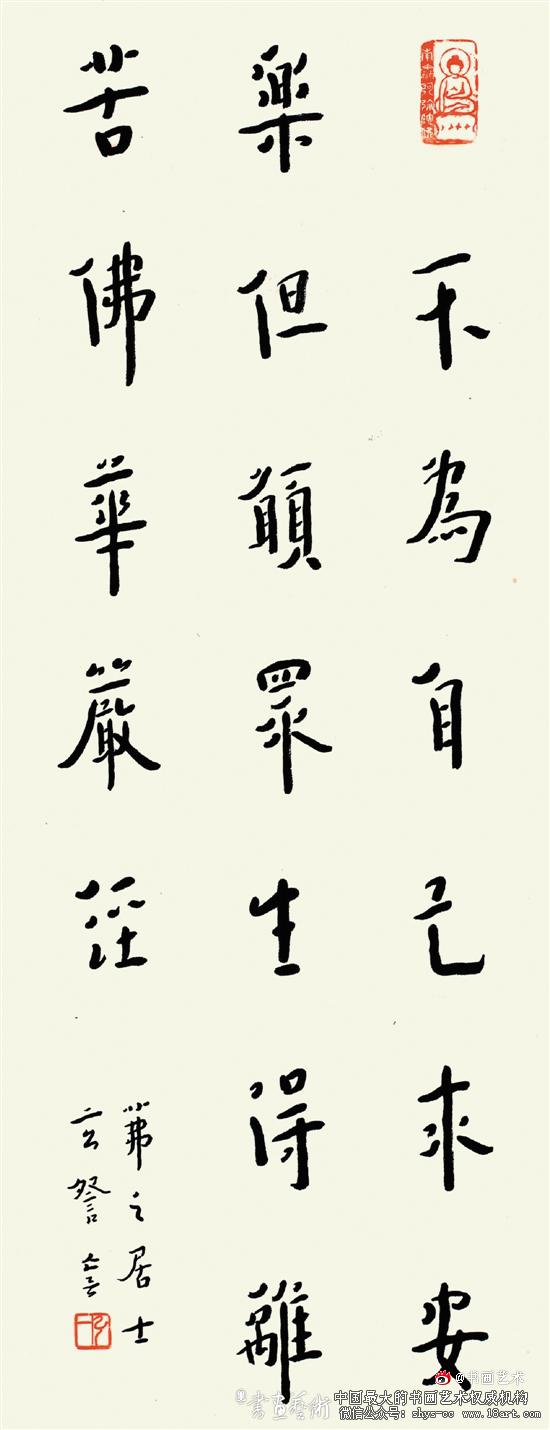 南無阿彌陀佛
不為自己求安
樂但願眾生得離
苦佛華嚴經
茀之居士
@书画艺术
書畫藝術
中国最大的书画艺术权威机构
微信公众号：shys-cc www.18art.com